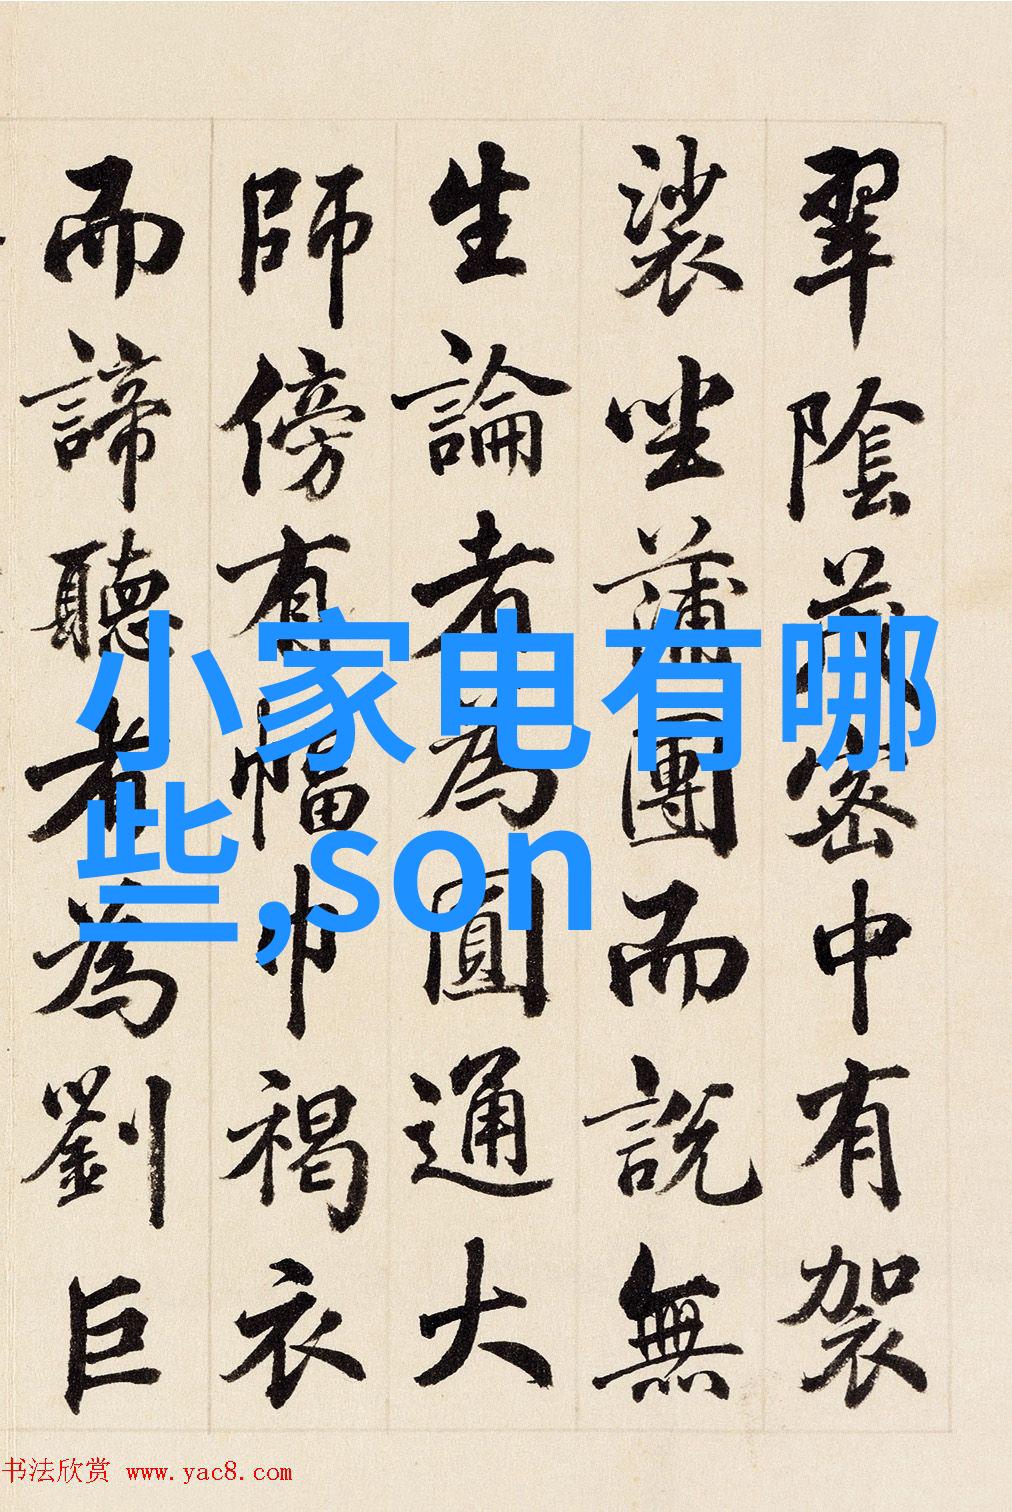 翠陰茂密中有袈
裟坐蒲團而說無
生論者為圓通大
師傍有幅巾褐衣
而諦聽者為劉巨
小家电有哪
些,son
书法欣赏 www.yac8.com